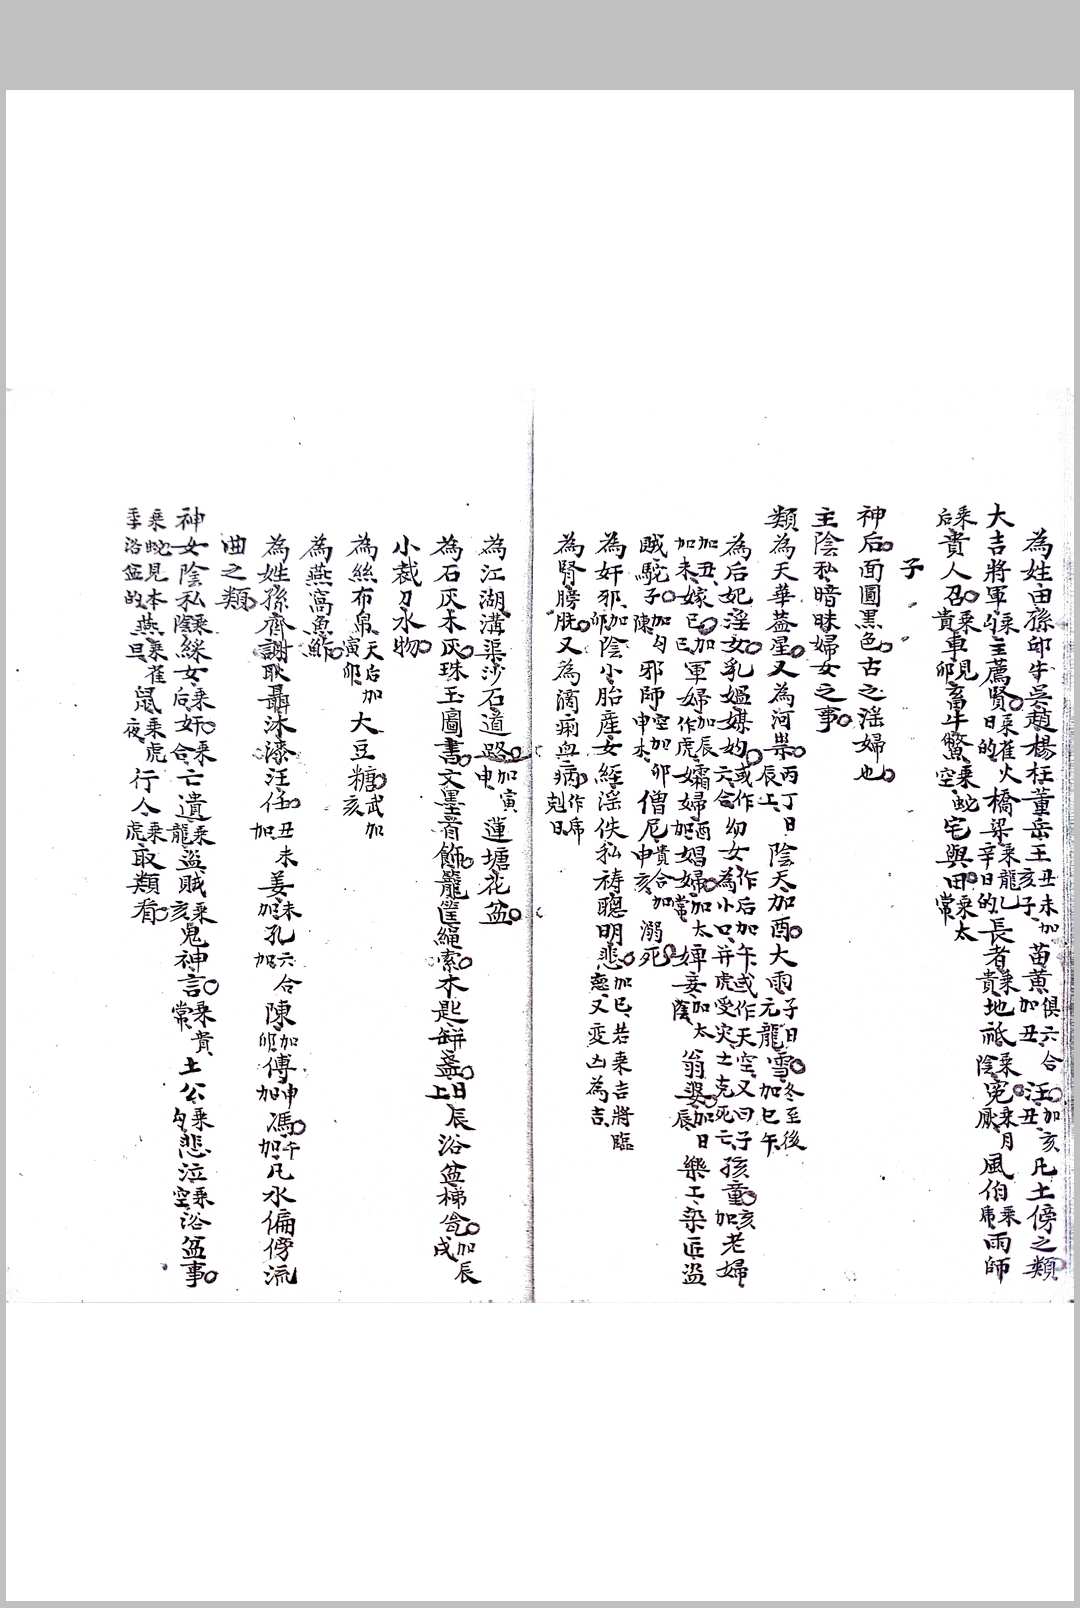 為姓由孫邱牛吳趙楊杜董岳王丑未加亥子苗黃俱六合加丑汪加亥丑凡土傍之類
大吉將軍乘勾主薦賢日乘雀的火橋梁乘龍乙辛日的長者乘貴地祗乘陰冤乘月厭風伯乘虎雨師
乘后貴人召乘貴車見卯畜牛鱉乘蛇空宅與田乘太常
子
神后面圓黑色古之淫婦也
主陰私暗昧婦女之事
類為天華蓋星又為河祟丙丁日辰上陰天加酉大雨子日元龍雪冬至後加巳午
為后妃淫女乳媼媒妁或作六合幼女作后加午或作天空又曰子為小口并虎受災土克死亡孩童加亥老婦
加丑嫁巳加軍婦加辰孀婦酉娼婦加太婢妾加太陰翁婆加日辰樂工染匠盜
賊駝子加勾陳邪師空加卯申本僧尼貴合加申亥溺死
為奸邪加卯陰小胎産女經淫佚私禱聰明悲加巳若乘吉將臨
為腎膀胱又為滴痢血病作虎剋日
為江湖溝渠沙石道路加寅申蓮塘花盆
為石灰木灰珠玉圖書文墨首飾籠筐繩索木匙餅盞日上辰浴盆梯加辰戌
小裁刀水物
為絲布帛天后加寅卯大豆糖武加亥
為燕窩魚鮓
為姓孫齊謝耿聶沐漆汪任丑未加姜未加孔六合加陳加卯傅申加馮午加凡水偏傍流
曲之類
神女陰私乘陰綵女乘后奸乘合亡遺乘龍盜賊乘亥鬼神言乘貴常土公乘勾悲泣乘空浴盆事
乘蛇見本燕乘雀鼠乘虎夜行人乘虎取類看